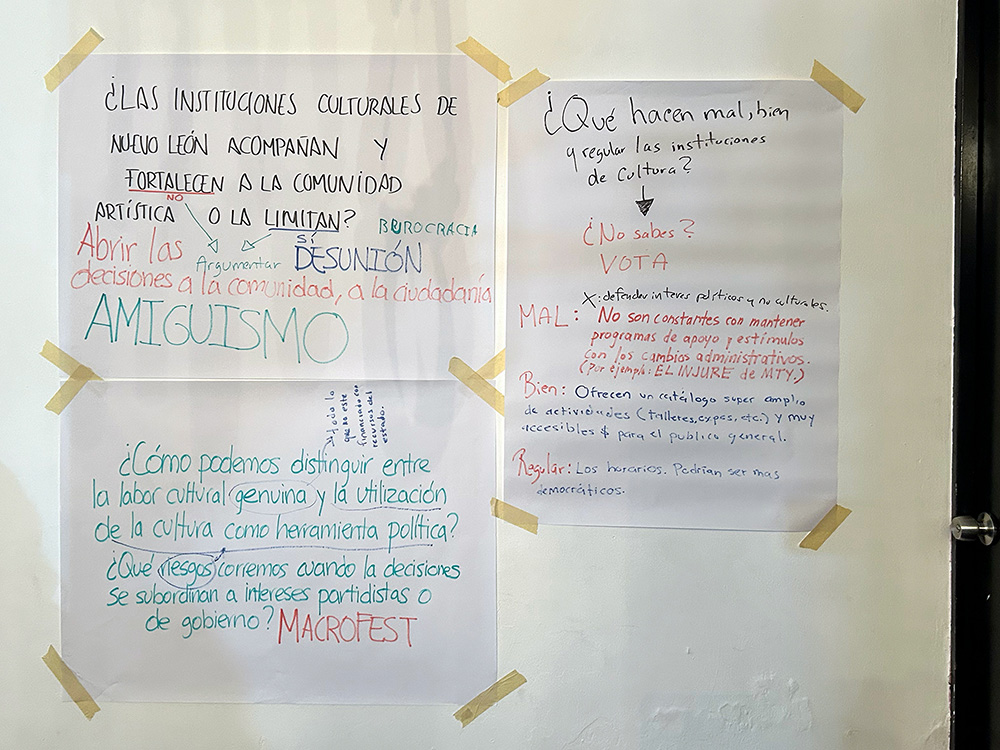 ¿LAS INSTITUCIONES CULTURALES DE
NUEVO LEÓN ACOMPAÑAN Y
FORTALECEN A LA COMUNIDAD
NO
ARTÍSTICA O LA LIMITAN?
SÍ
BUROCRACIA
Abrir las
Argumentar
DESUNIÓN
decisiones a la comunidad, a la ciudadanía
AMIGUISMO
todo lo
que no este
financiado con
recursos del
estado.
¿Cómo podemos distinguir entre
la labor cultural genuina y la utilización
de la cultura como herramienta política?
¿Qué riesgos corremos cuando la decisiones
se subordinan a intereses partidistas o
de gobierno? MACROFEST
¿Qué hacen mal, bien
y regular las instituciones
de cultura?
¿No sabes?
VOTA
X: defender interes políticos y no culturales.
MAL: No son constantes con mantener
programas de apoyo y estímulos
con los cambios administrativos.
(Por ejemplo: EL INJURE de MTY.)
Bien: Ofrecen un catálogo super amplio
de actividades (talleres, expos, etc.) y muy
accesibles $ para el publico general.
Regular: Los horarios. Podrían ser mas
democráticos.